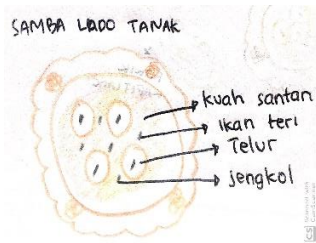 SAMBA LADO TANAK
kuah santan
ikan teri
Telur
jengkol
CS Scanned with CamScanner